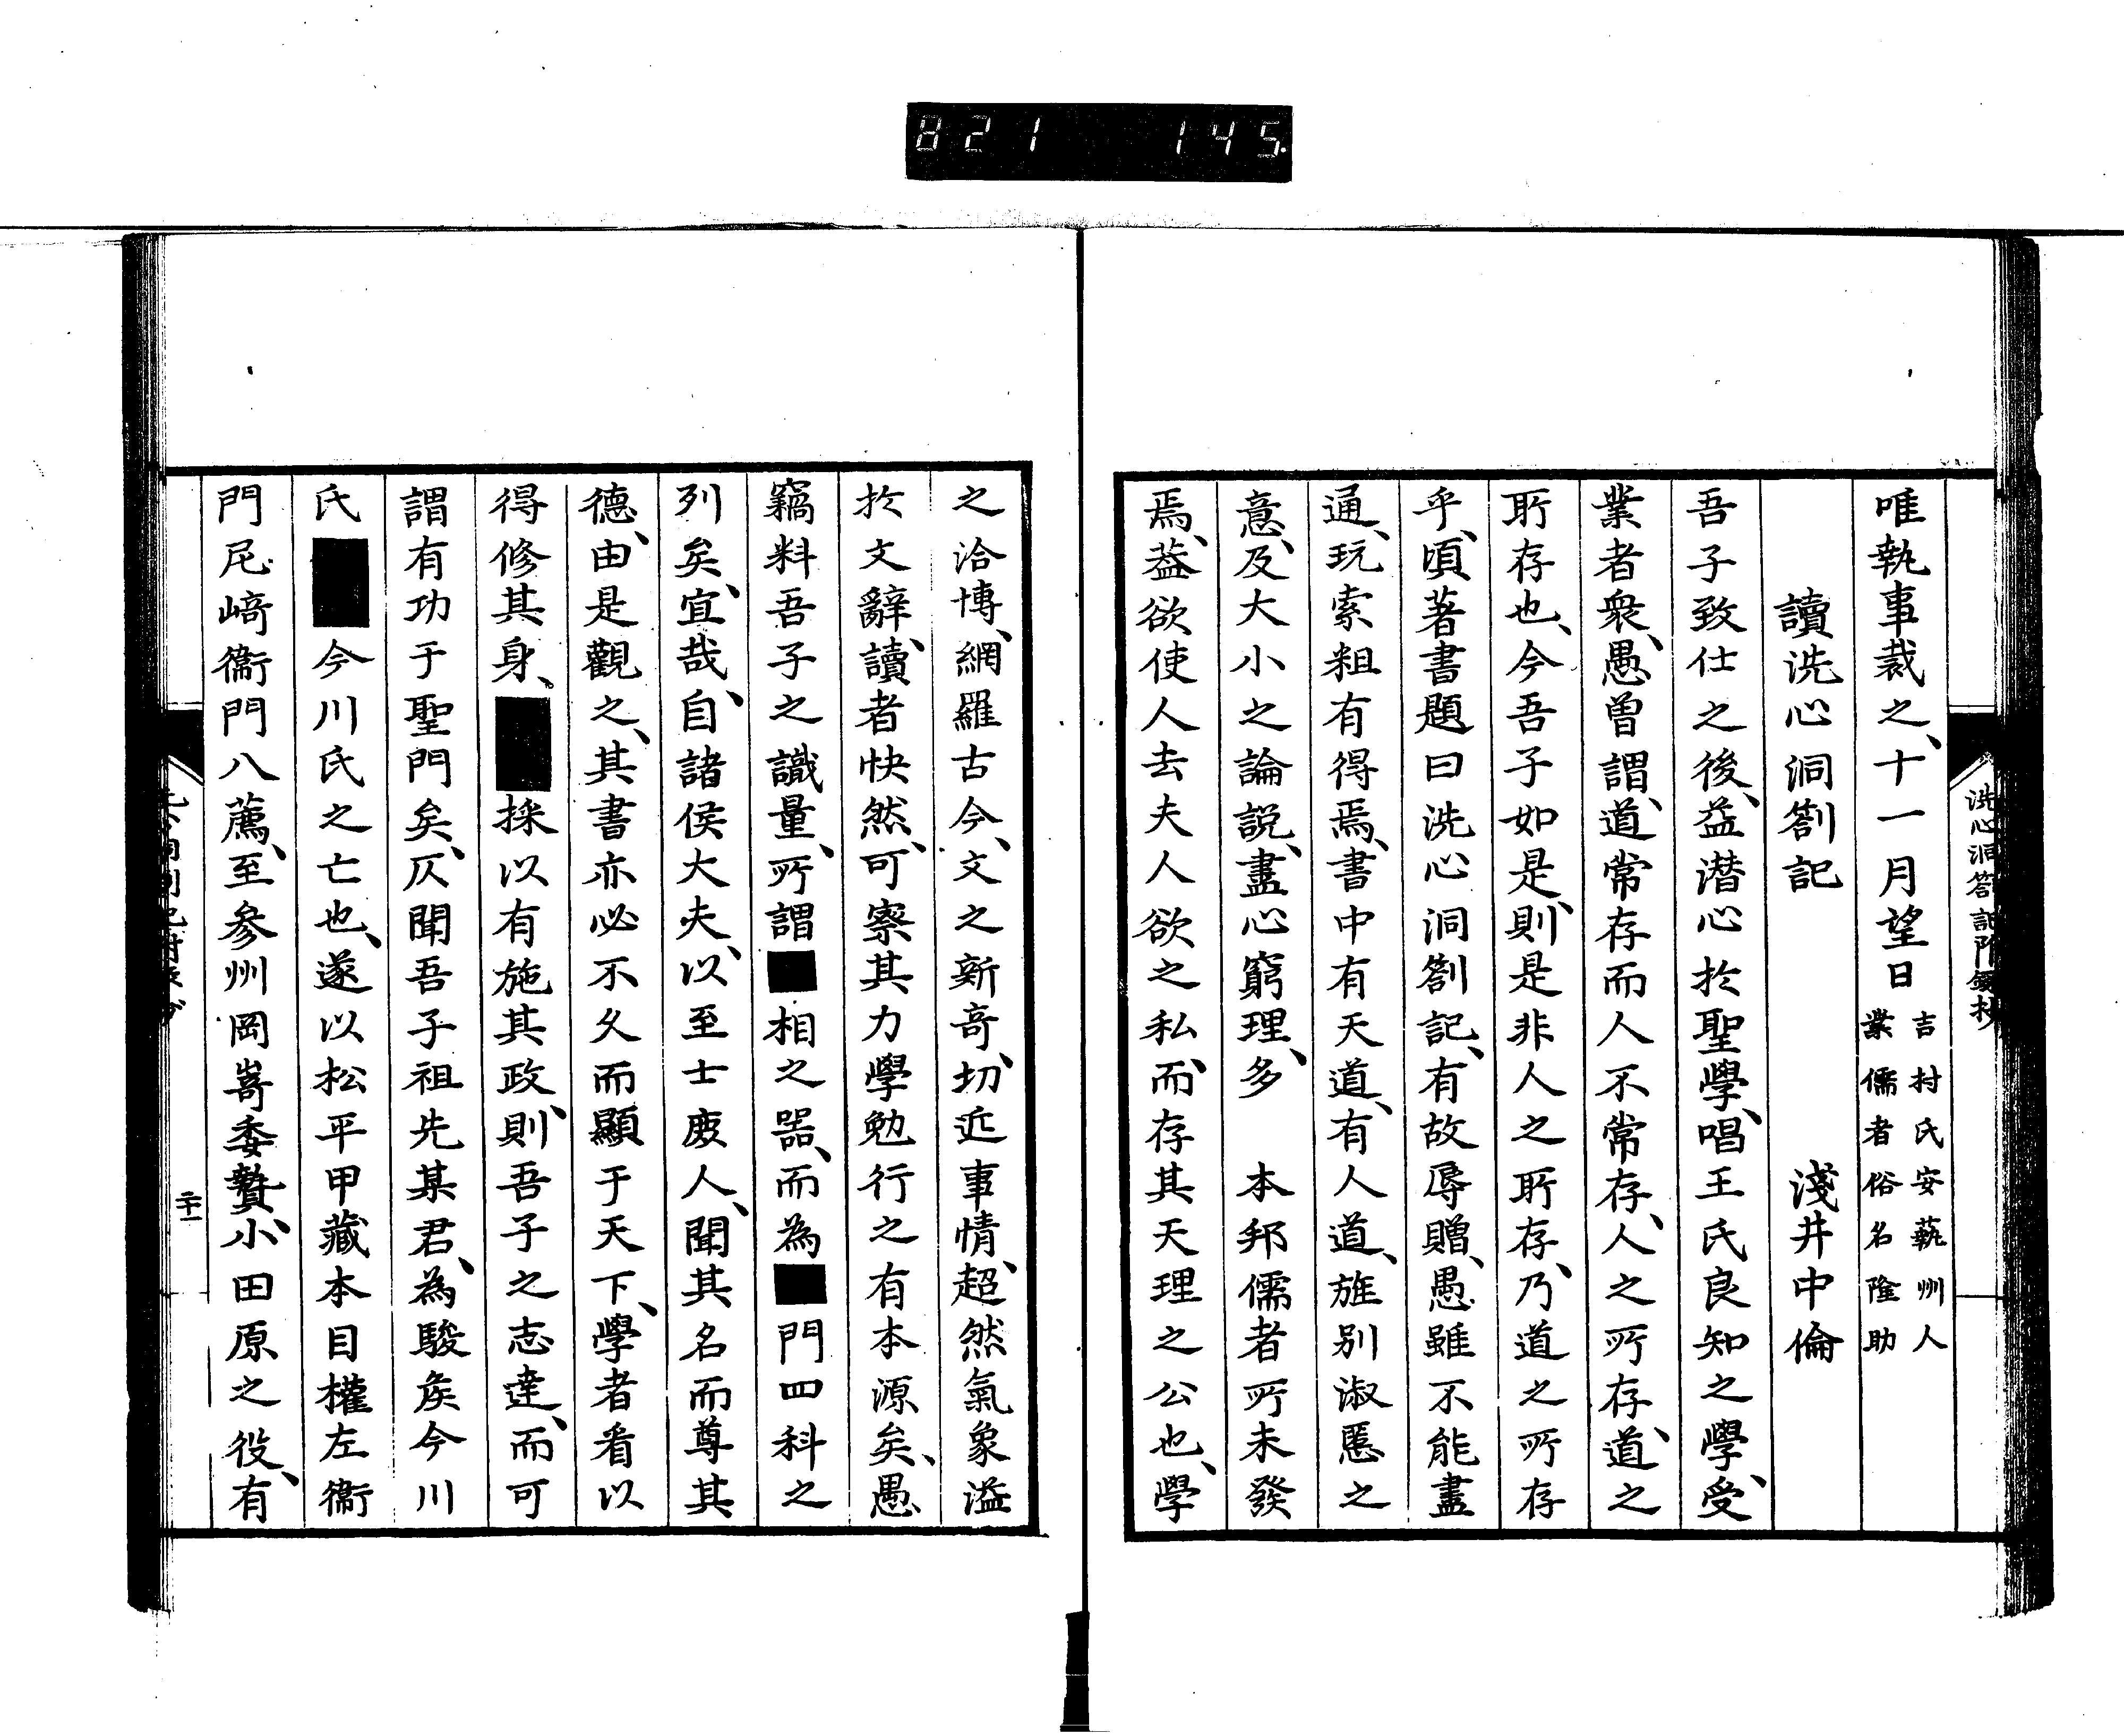 821 145
洗心洞箚記附録抄
唯執事裁之、十一月望日
吉村氏安藝州人
業儒者俗名隆助
讀洗心洞劄記 淺井中倫
吾子致仕之後、益潜心於聖學、唱王氏良知之學、受
業者衆、愚曾謂、道常存而人不常存、人之所存、道之
所存也、今吾子如是、則是非人之所存、乃道之所存
乎、頃著書題曰洗心洞劄記、有故辱贈、愚雖不能盡
通、玩索粗有得焉、書中有天道、有人道、旌別淑慝之
意、及大小之論説、盡心窮理、多 本邦儒者所未發
焉、葢欲使人去夫人欲之私、而存其天理之公也、學
之洽博、網羅古今、文之新奇、切近事情、超然氣象溢
於文辭、讀者快然、可察其力學勉行之有本源矣、愚
竊料吾子之識量、所謂■相之噐、而為■門四科之
列矣、宜哉、自諸侯大夫、以至士庻人、聞其名而尊其
德、由是觀之、其書亦必不久而顯于天下、學者看以
得修其身、■採以有施其政、則吾子之志達、而可
謂有功于聖門矣、仄聞吾子祖先某君、為駿矦今川
氏■今川氏之亡也、遂以松平甲藏本目權左衞
門尼﨑衞門八薦、至參州岡嵜委贄、小田原之役、有
二十一